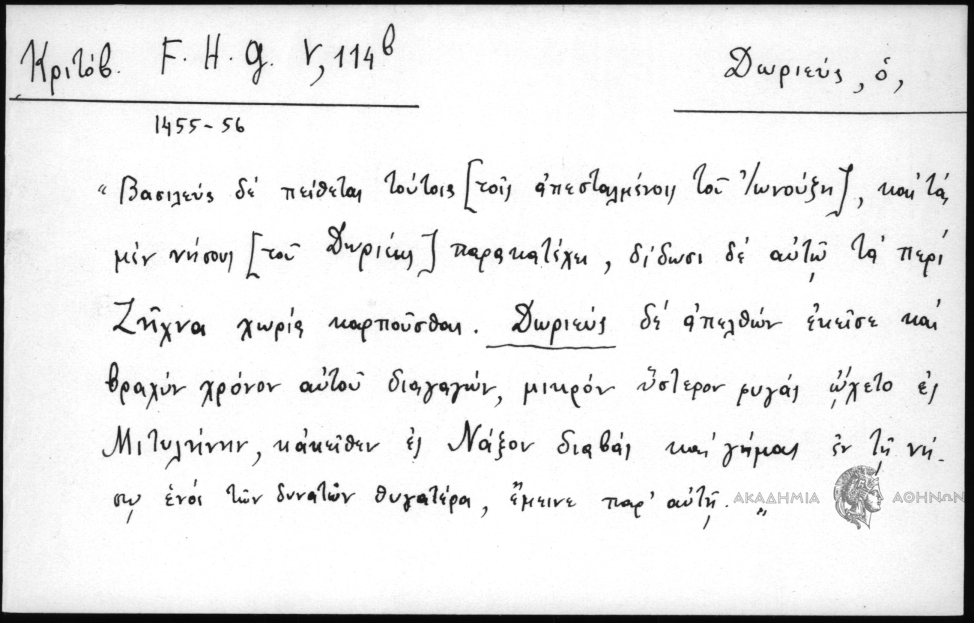 Κριτόβ. F. H. G. V, 114ᵇ
Δωριεύς, ὁ,
1455-56
"Βασιλεύς δέ πείθεται τούτοις [τοῖς ἀπεσταλμένοις τοῦ Ἰωνούζη], καί τάς
μέν νήσους [τοῦ Δωριέως] παρακατέχει, δίδωσι δέ αὐτῷ τά περί
Ζῆχνα χωρία καρποῦσθαι. Δωριεύς δέ ἀπελθών ἐκεῖσε καί
βραχύν χρόνον αὐτοῦ διαγαγών, μικρόν ὕστερον φυγάς ᾤχετο ἐς
Μιτυλήνην, κἀκεῖθεν ἐς Νάξον διαβάς καί γήμας ἐν τῇ νή-
σῳ ἑνός τῶν δυνατῶν θυγατέρα, ἔμεινε παρ' αὐτῇ."
ΑΚΑΔΗΜΙΑ ΑΘΗΝΩΝ